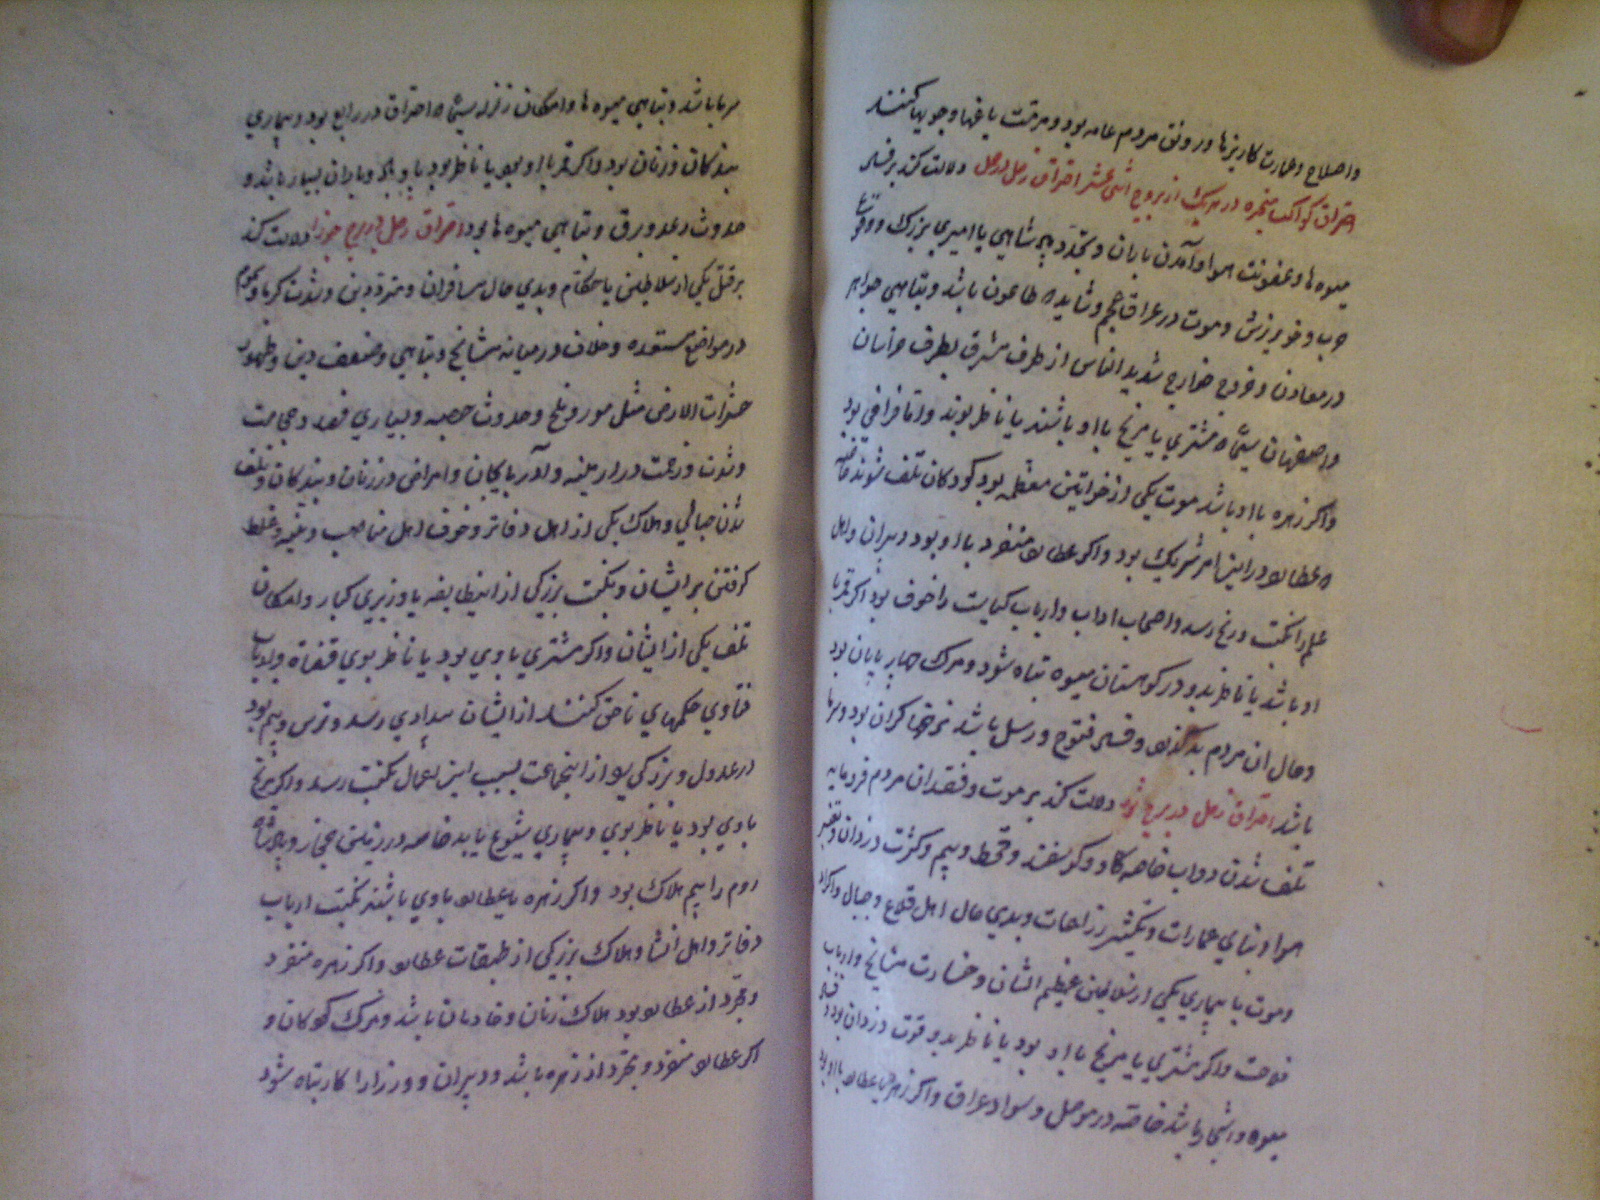 و اصلاح و عمارت کاریزها و رونق مردم عامه بود و مرمت باغها و جویها کنند
احتراق کواکب متحیره در هریک از بروج اثنی عشر احتراق زحل در حمل دلالت کند بر فساد
میوه ها و عفونت هوا و آمدن باران و تجدد پادشاهی یا امیری بزرگ و وقوع
حرب و خونریزش و موت در عراق عجم و شاید که طاعون باشد و تباهی جواهر
در معادن و خروج خوارج شدید الناس از طرف مشرق بطرف خراسان
و اصفهان سیما که مشتری یا مریخ با او باشند یا ناظر بوند و اتفاقی بود
و اگر زهره با او باشد موت یکی از خواتین معظمه بود کودکان تلف شوند خاصه
که عطارد در این امر شریک بود و اگر عطارد منفرد با او بود دبیران و اهل
علم را نکبت و رنج رسد و اصحاب اداب و ارباب کتابت را خوف بود اگر قمر با
او باشد یا ناظر بدو در کوهستان میوه تباه شود و مرگ چهارپایان بود
و حال آن مردم بد گذرد و فساد فتوح و رسل باشد نرخها گران بود و سرما
باشد احتراق زحل در برج ثور دلالت کند بر موت و فقدان مردم فرومایه
تلف شدن دواب خاصه گاو و گوسفند و قحط و بیم و کثرت دزدان و تغیر
هوا و تباهی عمارات و تکثیر زراعات و بدی حال اهل قلاع و جبال و اکراد
و موت یا بیماری یکی از سلاطین عظیم الشان و خسارت مشایخ و ارباب
فلاحت و اگر مشتری یا مریخ با او بود یا ناظر بدو قوت دزدان بود و فساد
میوه و اشجار باشد خاصه در موصل و سواد عراق و اگر زهره یا عطارد با او بود
سرما باشد و تباهی میوه ها و امکان زلزله سیما که احتراق در رابع بود و بیماری
بندگان و زنان بود و اگر قمر با او بود یا ناظر بود با و باران بسیار باشد و
حدوث رعد و برق و تباهی میوه ها بود احتراق زحل در برج جوزا دلالت کند
بر قتل یکی از سلاطین یا حکام و بدی حال مسافران و مترددین و شدت گرما و سموم
در مواضع مستعده و خلاف در میانه مشایخ و تباهی و ضعف دین و ظهور
حشرات الارض مثل مور و ملخ و حدوث حصبه و بسیاری فصد و حجامت
و شدت و زحمت در ارمنیه و آذربایجان و امراض در زنان و بندگان و تلف
شدن حبالی و هلاک یکی از اهل دفاتر و خوف اهل مناصب و غلط
گرفتن بر ایشان و نکبت بزرگی از اینطایفه یا وزیری کبار و امکان
تلف یکی از ایشان و اگر مشتری با وی بود یا ناظر بوی قضاة و ارباب
فتاوی حکمهای ناحق کنند از ایشان بیدادی رسد و ترس و بیم بود
در عدول و بزرگی را از اینجماعت بسبب این اعمال نکبت رسد و اگر مریخ
با وی بود یا ناظر بوی و بیماری شیوع یابد خاصه در زمین حجاز و پادشاه
روم را بیم هلاک بود و اگر زهره یا عطارد با وی باشند نکبت ارباب
دفاتر و اهل انشا و هلاک بزرگی از طبقات عطارد و اگر زهره منفرد
و مجرد از عطارد بود هلاک زنان و خادمان باشد و مرگ کودکان و
اگر عطارد منفرد و مجرد از زهره باشد و دبیران و وزرا را کار تباه شود